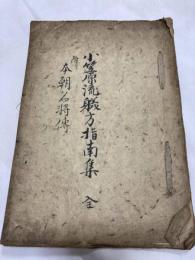 小笠原流躾方指南集 全
附
本朝名将傳